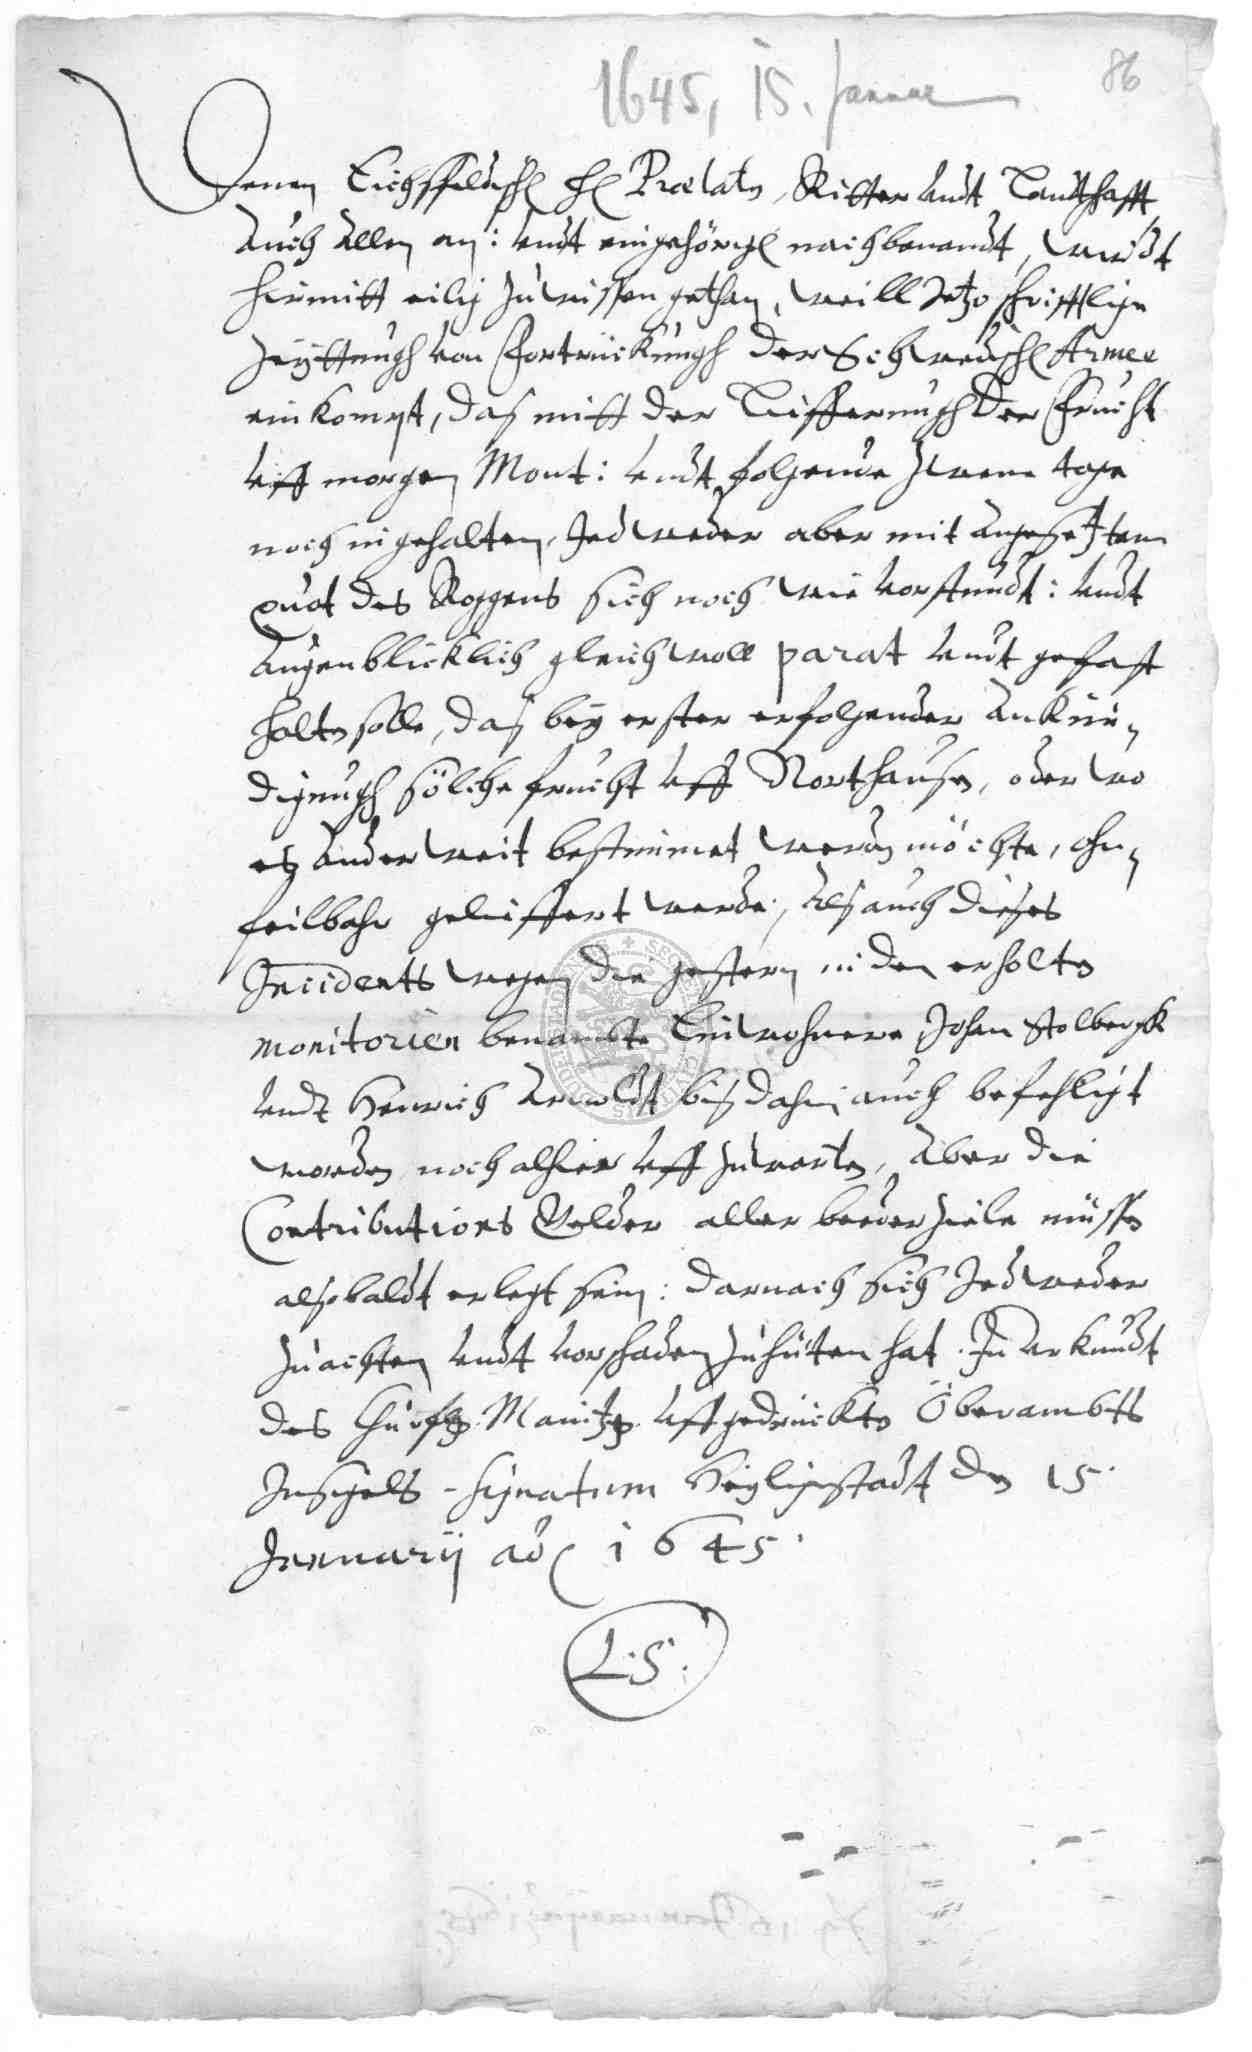 1645, 15. Januar
86
Denen Eichsfeldisch H Prælatn, Ritter undt Landtschafft
Auch Allen an: undt eingehörig nachbenandt, wirdt
hirmitt eilig zu wissen gethan, weill Jetzo schrifftlige
Zeÿttungh von Fortrückungh der Schwedisch Armee
einkompt, das mitt der Lifferungh der Frucht
uff morgen Mont: undt folgende zwene tage
noch ingehalten, Jedweder aber mit angesetztem
quot des Roggens sich noch wie vorstundt: undt
Augenblicklich gleichwoll parat undt gefast
haltn solle, das beÿ erster erfolgender Ankün„
digungh sölche frucht uff Northausn, oder wo
es anderweit bestimmet werdn möchte, ohn„
feilbahr geliffert werde, Als auch dieses
Incidents wegen die gestern in den erholtn
monitorien benambte Einwohnere Johan Stolbergk
undt Henrich Arnoldt bis dahin auch befehligt
worden noch alhier uff zuwartn, Aber die
Contributions Gelder aller beeder ziele müssn
alsobaldt erlegt sein: darnach sich Jedweder
zuachten undt vor schaden zuhüten hat. In Urkundt
des Churf: Maintz: uffgedrücktn Öberambts
Insigels. Signatum Heÿligenstadt dn 15.
Januarij aō 1645.
L: S: